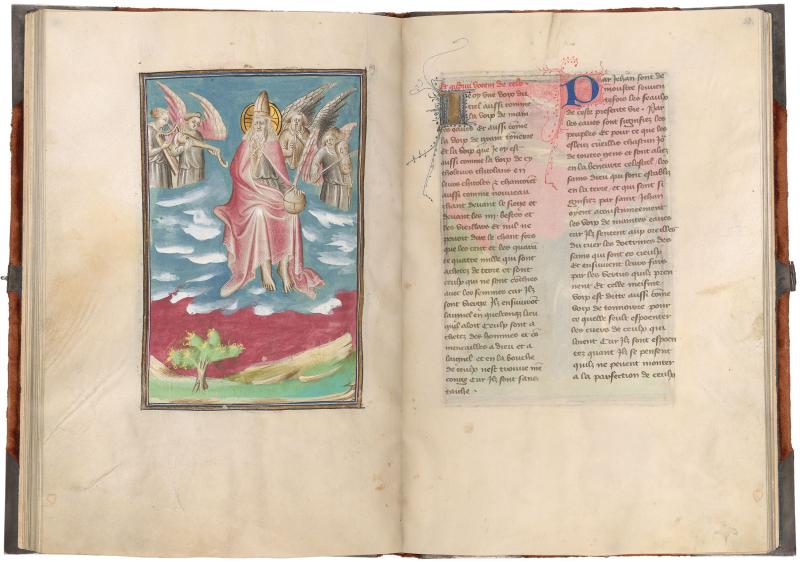 Et audivi vocem de celo
Je oy une voix du
ciel aussi comme
la voix de main
tes eaues et aussi come
la voix de grant tonnerre
et la voix que Je oy est
aussi comme la voix de cy
tholeurs citolans en
leurs citoles et chantoient
aussi comme nouveau
chant devant le siege et
devant les .iiii. bestes et
les vieillars et nul ne
pouoit dire le chant fors
que les cent et les quaran
te quatre mille qui sont
achetez de terre et sont
ceulx qui ne sont couchies
avec les femmes car Ilz
sont vierge Ilz ensuivent
laignel en quelconque lieu
qui aloit Ceulx sont a
chetez des hommes et co
mencailles a dieu et a
laignel et en la bouche
de ceulx nest trouve me
conge Car Ilz sont sans
tache .
Par Jehan sont de
moustre souven
tefois les
de ceste presente vie . Par
les eaues sont signifiez les
peuples et pour ce que les
esleuz cueilliz chascun Jo
de toutes gens et sont alez
en la beneurte celestiel . les
sains dieu qui sont establiz
en la terre , et qui sont si
gnifiez par saint Jehan
oyent acoustumeement
les voix de maintes eaues
car Ilz sentent aux oreilles
du cuer les doctrines des
sains qui sont es cieulx
Et ensuivent leurs fais
par les vertus quilz pren
nent Et celle meisme
voix est ditte aussi come
voix de tonnoirre pour
ce quelle seult espoenter
les cuers de ceulx qui
loient Car Ilz sont espoen
tez quant Ilz se pensent
quilz ne pevent monter
a la parfection de ceulx